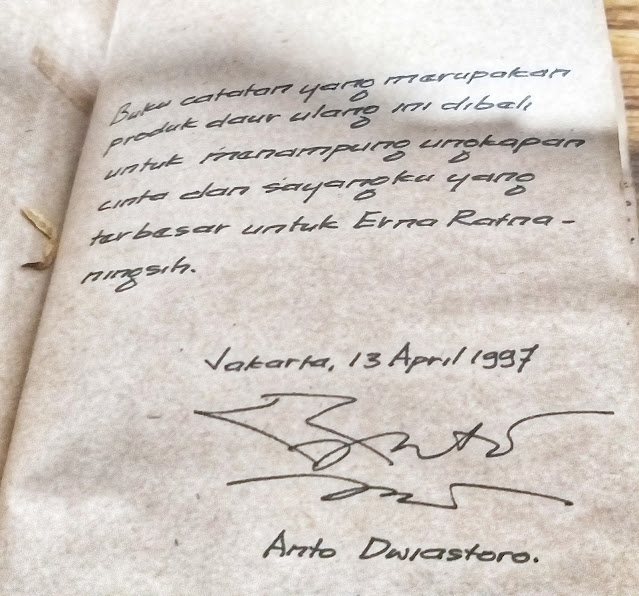 Buku catatan yang merupakan
produk daur ulang ini dibeli
untuk menampung ungkapan
cinta dan sayangku yang
terbesar untuk Erna Ratna-
ningsih.
Jakarta, 13 April 1997
Anto Dwiastoro.